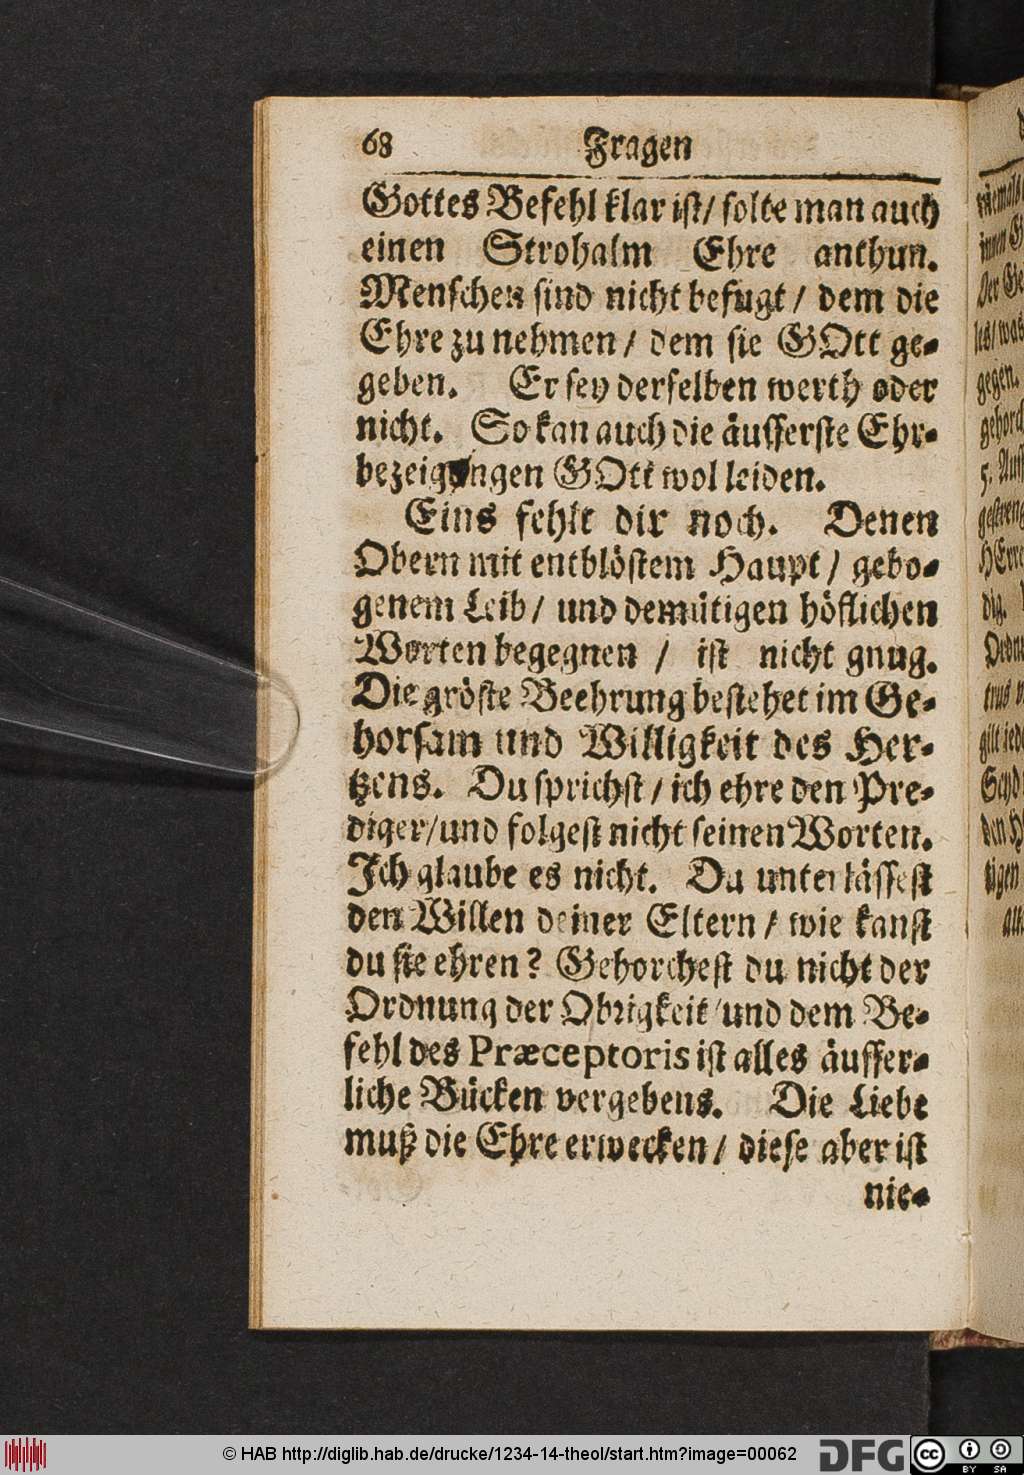 68 Fragen
Gottes Befehl klar ist/ solte man auch
einen Strohalm Ehre anthun.
Menschen sind nicht befugt/ dem die
Ehre zu nehmen/ dem sie GOtt ge-
geben. Er sey derselben werth oder
nicht. So kan auch die äusserste Ehr-
bezeigungen GOtt wol leiden.
Eins fehlt dir noch. Denen
Obern mit entblöstem Haupt/ gebo-
genem Leib/ und demütigen höflichen
Worten begegnen/ ist nicht gnug.
Die gröste Beehrung bestehet im Ge-
horsam und Willigkeit des Her-
tzens. Du sprichst/ ich ehre den Pre-
diger/und folgest nicht seinen Worten.
Ich glaube es nicht. Du unterlässest
den Willen deiner Eltern/ wie kanst
du sie ehren? Gehorchest du nicht der
Ordnung der Obrigkeit/und dem Be-
fehl des Præceptoris ist alles äusser-
liche Bücken vergebens. Die Liebe
muß die Ehre erwecken/ diese aber ist
nie-
© HAB http://diglib.hab.de/drucke/1234-14-theol/start.htm?image=00062
DFG
cc BY SA